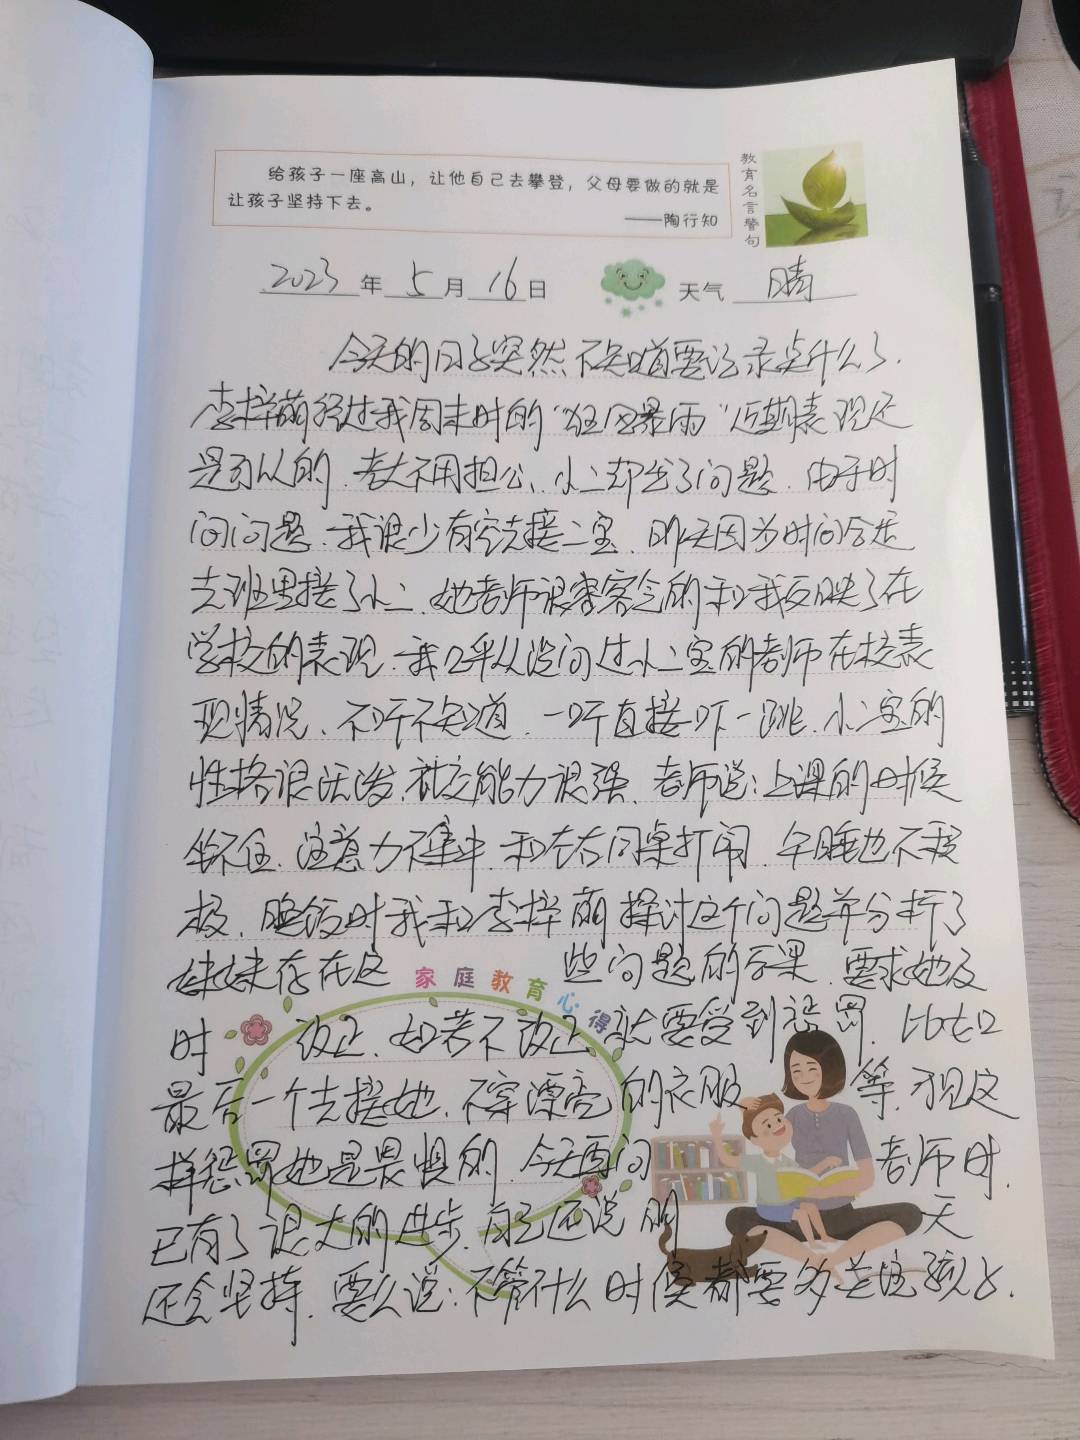 给孩子一座高山，让他自己去攀登，父母要做的就是
让孩子坚持下去。
——陶行知
教育名言警句
2023年5月16日 天气 晴
今天的日子突然不知道要记录点什么了.
李梓萌经过我周末时的“狂风暴雨”近期表现还
是可以的.老大不用担心、小二却出了问题.由于时
间问题.我很少有空去接二宝.昨天因为时间合适
去班里接了小二.她老师很客客气的和我反映了在
学校的表现.我几乎从没问过小二宝的老师在校表
现情况、不听不知道.一听直接吓一跳.小二宝的
性格很活泼.社交能力很强.老师说:上课的时候
坐不住.注意力不集中.和左右同桌打闹.午睡也不积
极.晚饭时我和李梓萌探讨这个问题并分析了
妹妹存在这些问题的后果.要求她及
家庭教育心得
时改正.如若不改正就要受到惩罚.比如
最后一个去接她.不穿漂亮的衣服等.但这
样惩罚她是畏惧的.今天再问老师时.
已有了很大的进步.自己还说明天
还会坚持.要么说:不管什么时候都要多关注孩子.